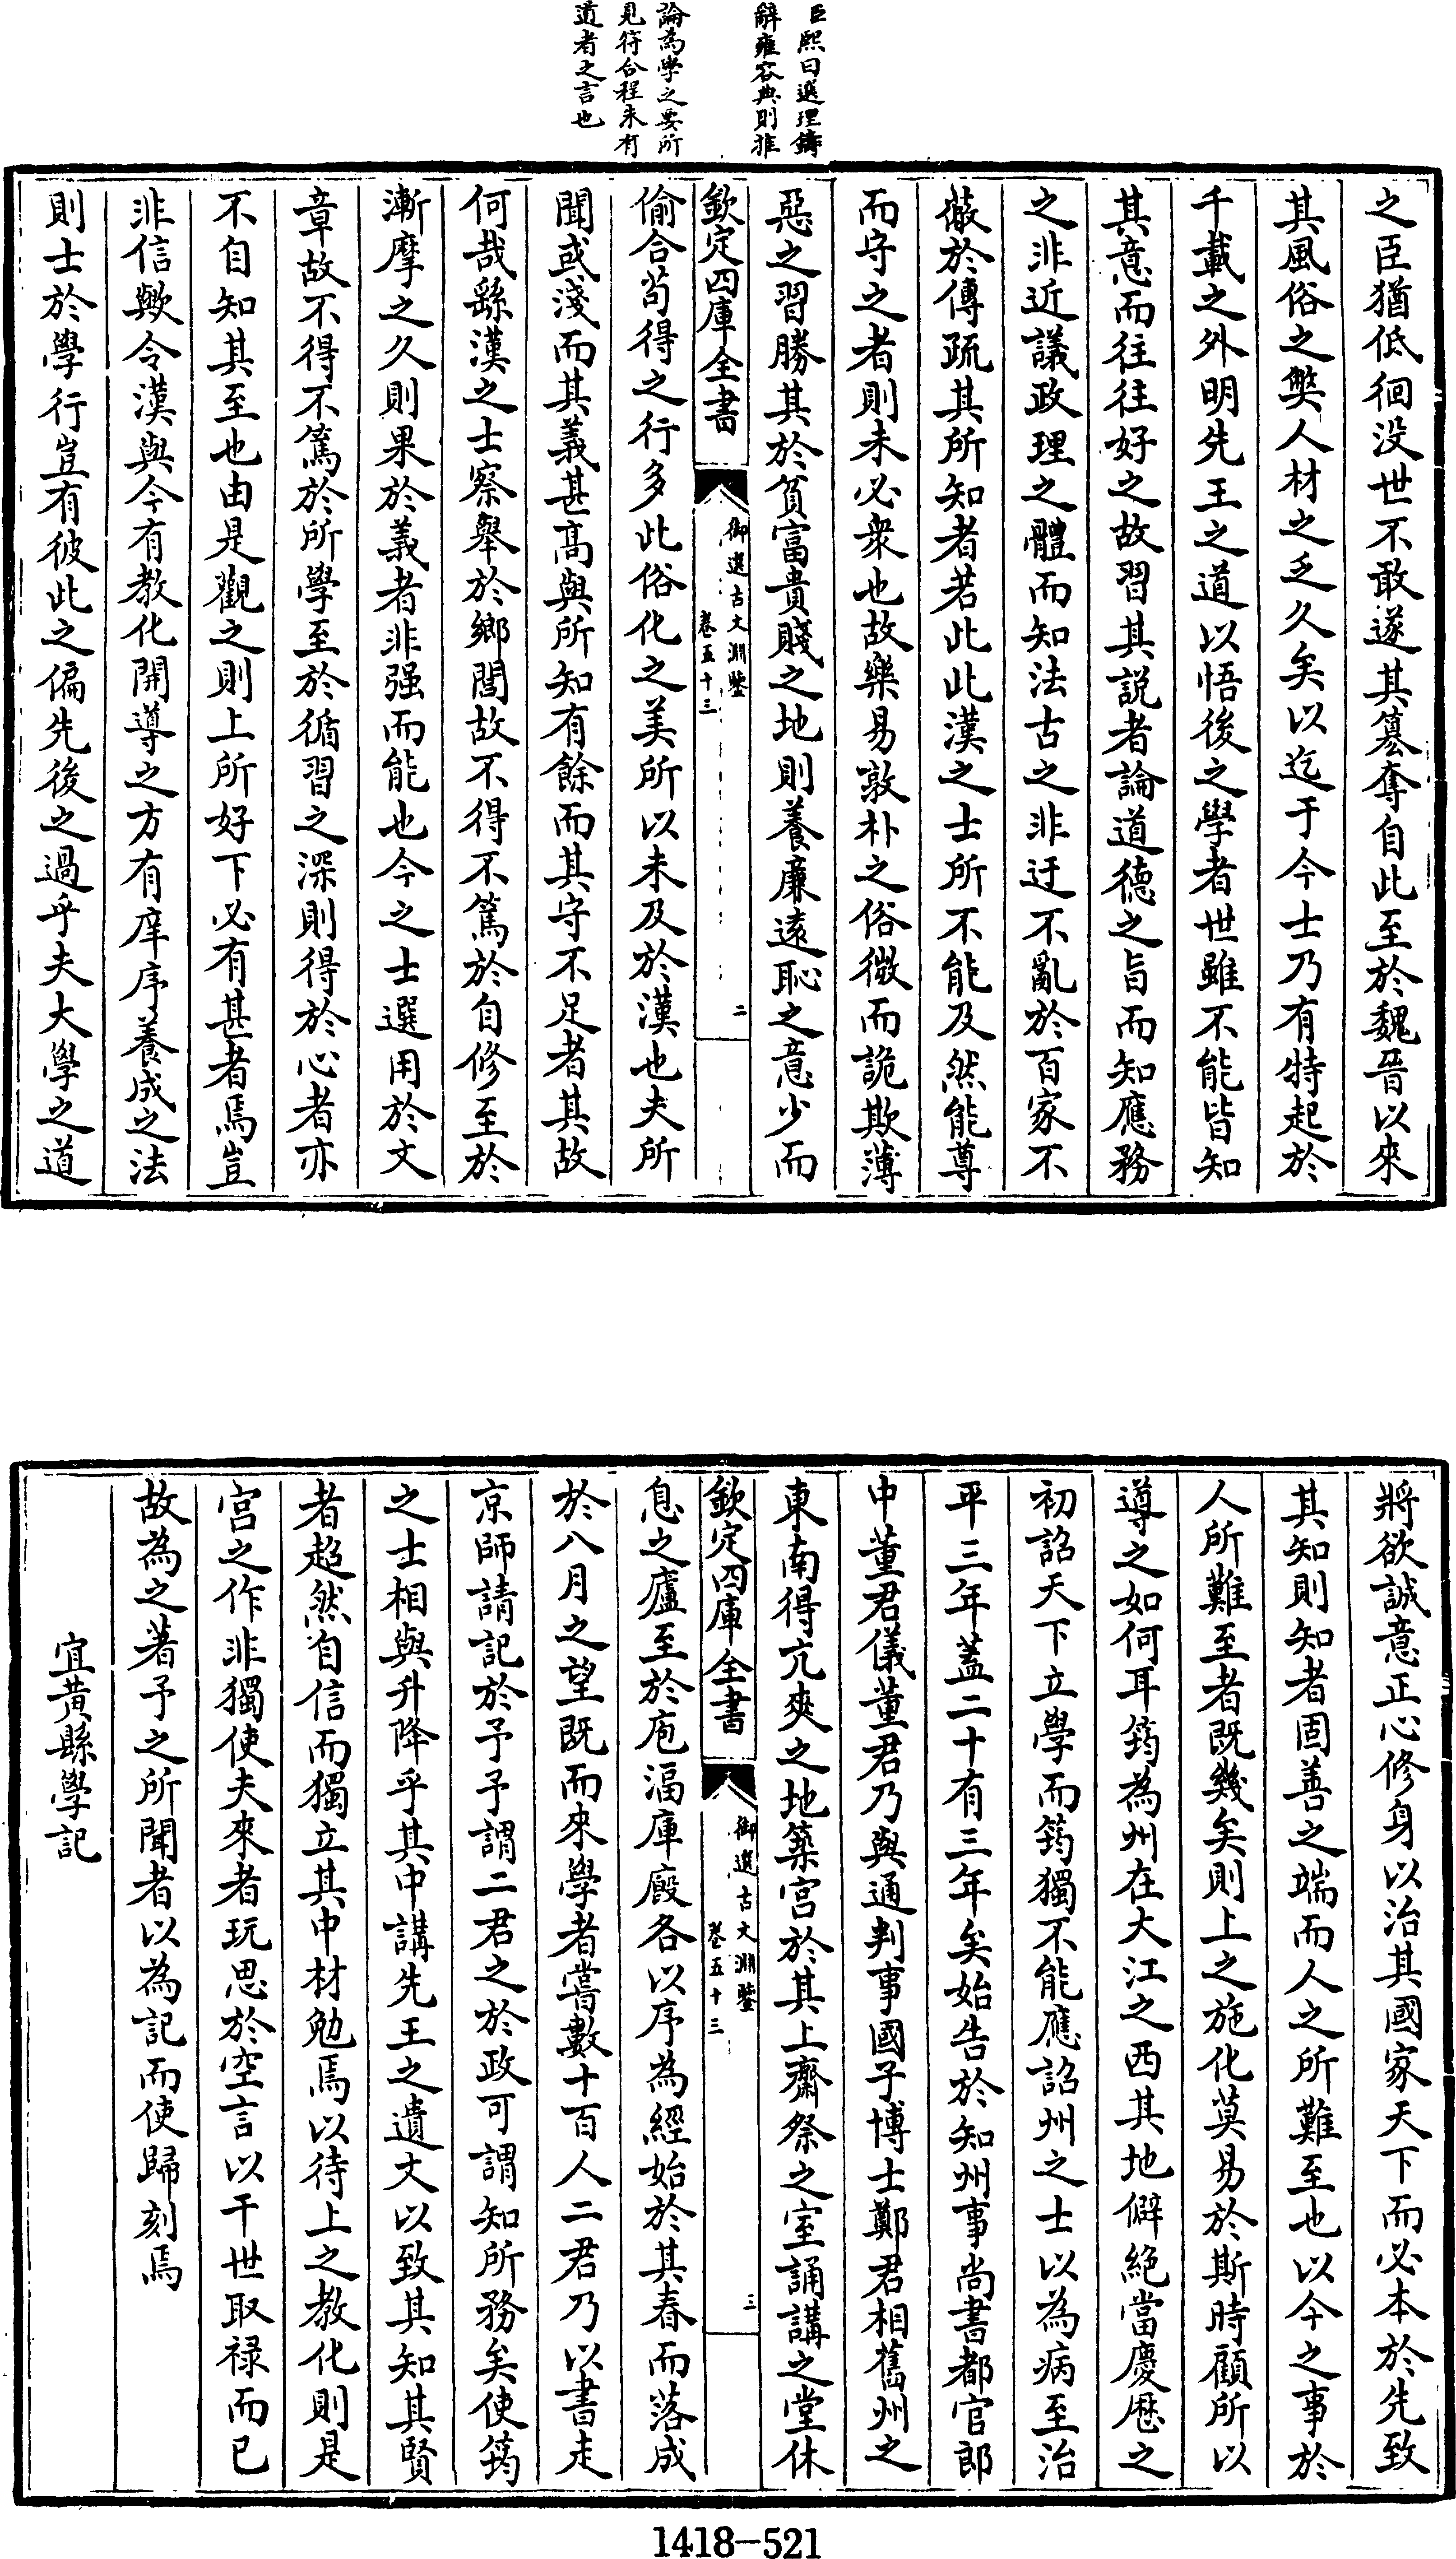 臣熙曰選理鑄
辭雍容典則非
論為學之要所
見符合程朱有
道者之言也
之臣猶低徊没世不敢遂其簒奪自此至於魏晉以來
其風俗之弊人材之乏久矣以迄于今士乃有特起於
千載之外明先王之道以悟後之學者世雖不能皆知
其意而往往好之故習其説者論道德之旨而知應務
之非近議政理之體而知法古之非迂不亂於百家不
蔽於傳疏其所知者若此此漢之士所不能及然能尊
而守之者則未必衆也故樂易敦朴之俗微而詭欺薄
惡之習勝其於貧富貴賤之地則養廉逺恥之意少而
欽定四庫全書
御選古文淵鑒
卷五十三
二
偷合苟得之行多此俗化之美所以未及於漢也夫所
聞或淺而其義甚髙與所知有餘而其守不足者其故
何哉繇漢之士察舉於鄉閭故不得不篤於自修至於
漸摩之久則果於義者非强而能也今之士選用於文
章故不得不篤於所學至於循習之深則得於心者亦
不自知其至也由是觀之則上所好下必有甚者焉豈
非信歟令漢與今有教化開導之方有庠序養成之法
則士於學行豈有彼此之偏先後之過乎夫大學之道
將欲誠意正心修身以治其國家天下而必本於先致
其知則知者固善之端而人之所難至也以今之事於
人所難至者既幾矣則上之施化莫易於斯時顧所以
導之如何耳筠為州在大江之西其地僻絶當慶厯之
初詔天下立學而筠獨不能應詔州之士以為病至治
平三年蓋二十有三年矣始告於知州事尚書都官郎
中董君儀董君乃與通判事國子博士鄭君相舊州之
東南得亢爽之地築宫於其上齋祭之室誦講之堂休
欽定四庫全書
御選古文淵鑒
卷五十三
三
息之廬至於庖湢庫廐各以序為經始於其春而落成
於八月之望既而來學者嘗數十百人二君乃以書走
京師請記於予予謂二君之於政可謂知所務矣使筠
之士相與升降乎其中講先王之遺文以致其知其賢
者超然自信而獨立其中材勉焉以待上之教化則是
宫之作非獨使夫來者玩思於空言以干世取禄而已
故為之著予之所聞者以為記而使歸刻焉
宜黄縣學記
1418-521